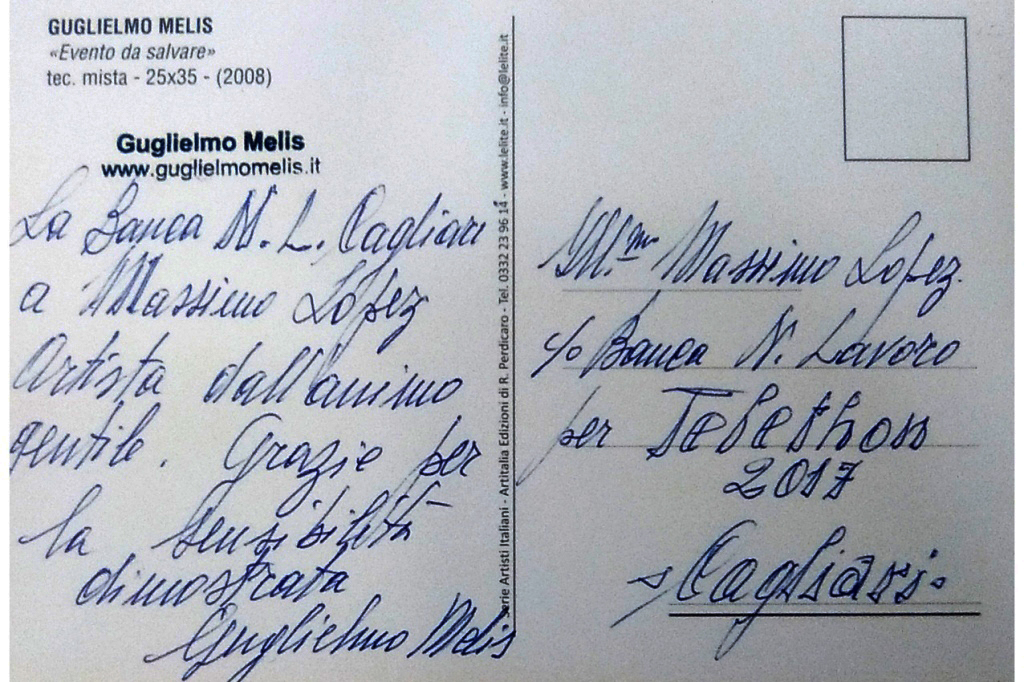 GUGLIELMO MELIS
«Evento da salvare»
tec. mista - 25x35 - (2008)
Guglielmo Melis
www.guglielmomelis.it
La Banca N. L. Cagliari
a Massimo Lopez
Artista dall'animo
gentile. Grazie per
la sensibilità
dimostrata
Guglielmo Melis
serie Artisti Italiani - Artitalia Edizioni di R. Perdicaro - Tel. 0332 23 96 14 - www.lelite.it - info@lelite.it
Ill.mo Massimo Lopez
c/o Banca N. Lavoro
per Telethon
2017
Cagliari.